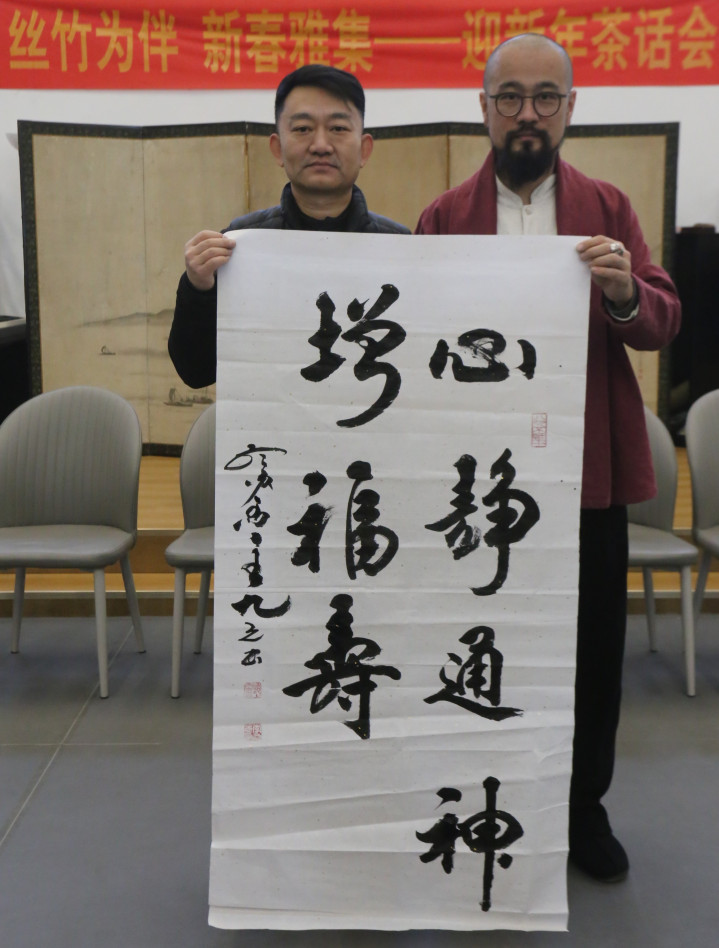 丝竹为伴 新春雅集——迎新年茶话会
心静通神
增福寿